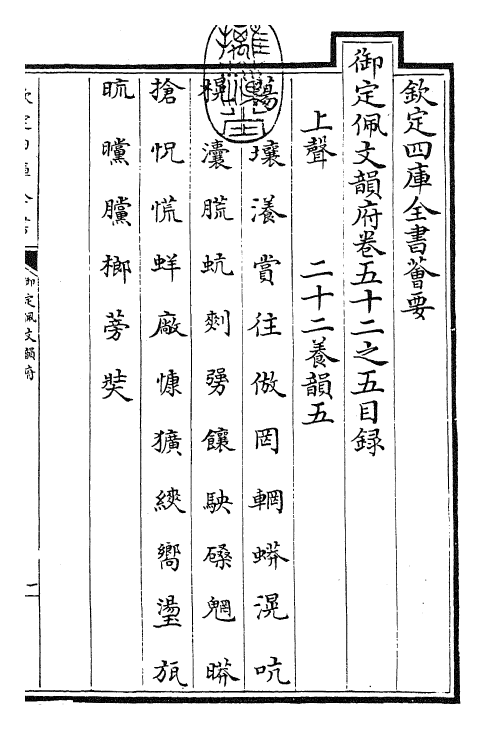 欽定四庫全書薈要
御定佩文韻府卷五十二之五目録
上聲 二十二養韻五
壤瀁賞往倣罔輞蟒滉吭
灢䑃蚢㓨勥饟駚磉魍䁳
搶怳慌蛘廠慷獷紻嚮瀴瓬
䀮曭臁榔蒡奘
御定佩文韻府